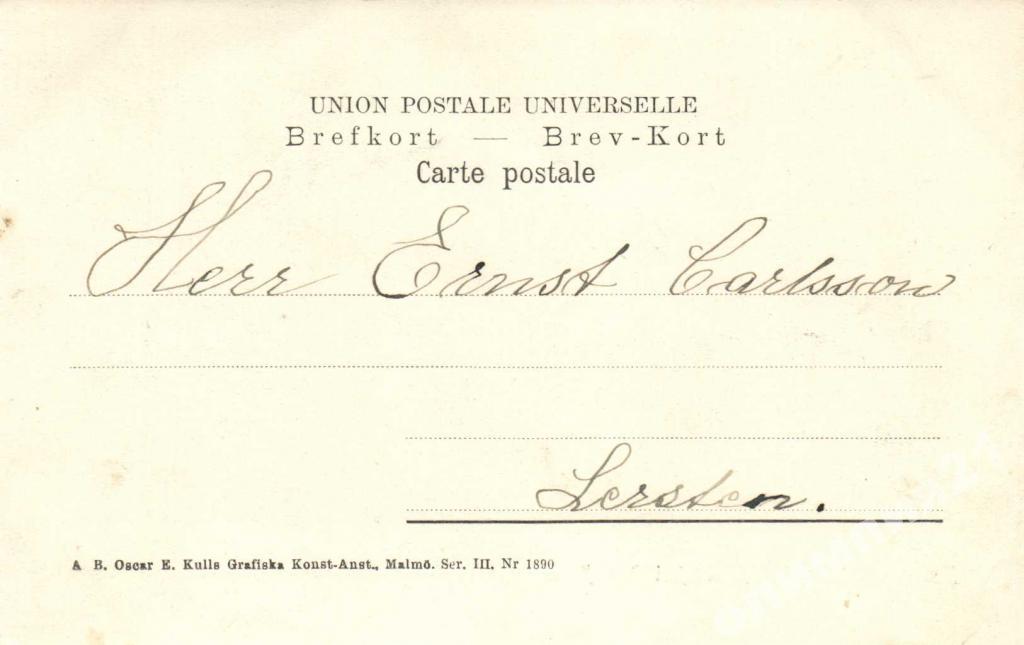 UNION POSTALE UNIVERSELLE
Brefkort — Brev-Kort
Carte postale
Herr Ernst Carlsson
Lersten.
A. B. Oscar E. Kulls Grafiska Konst-Anst., Malmö. Ser. III. Nr 1890